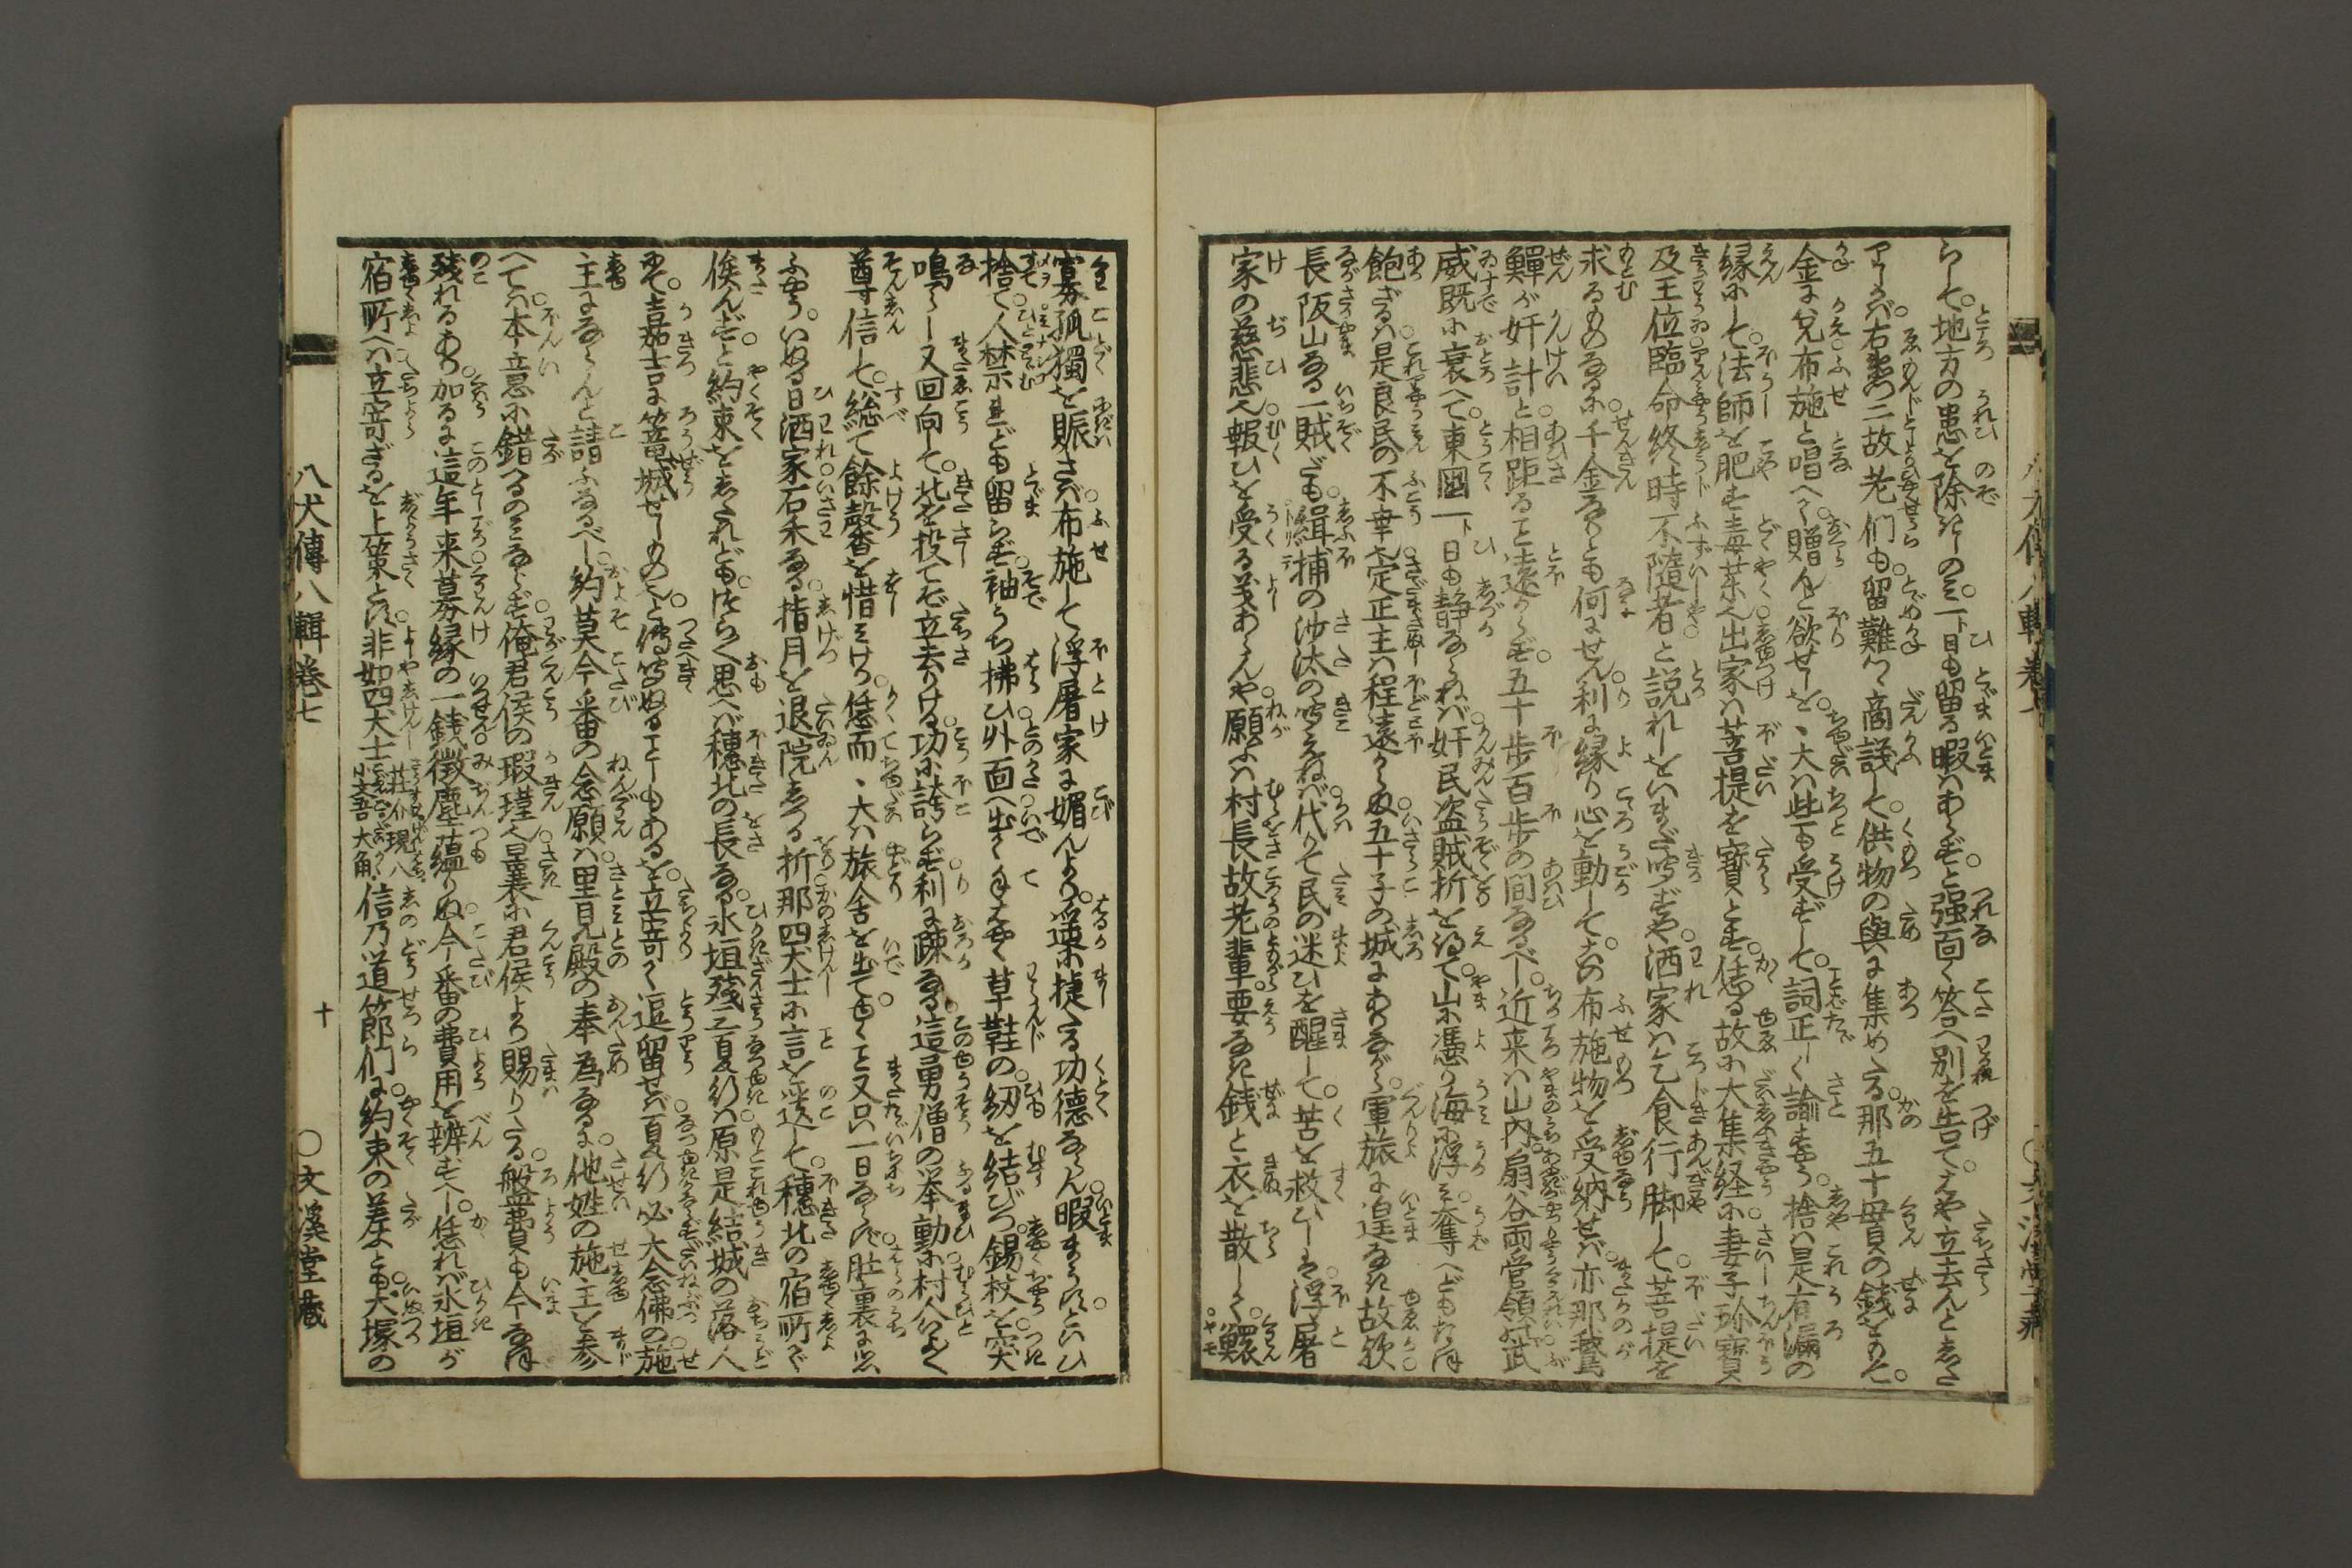 らして地方の患を除にしのミ一日も留る暇ハあらずと強面く答へ別を告てはや立去んとしたる
金に兌布施と唱へて贈んと欲せしを、大ハ些も受ずして詞正しく諭すやう捨ハ是有漏の
縁にして法師を肥す毒菜也出家ハ菩提を寶とす恁る故に大集経に妻子珍寶
及王位臨命終時不隨者と説れしをいまだ聞ずや洒家ハ乞食行脚して菩提を
求るものなるに千金なりとも何にせん利に縁り心を動してその布施物を受納せバ亦那鵞
鱓が奸計と相距ること遠からず五十歩百歩の間なるべし近来ハ山内扇谷両管領の武
威既に衰へて東國一日も静ならねバ奸民盗賊折を得て山に憑り海に浮ミ奪へども
飽ざるハ是良民の不幸也定正主ハ程遠からぬ五十子の城にありながら軍旅に遑なき故歟
長阪山なる一賊だも緝捕の沙汰の聞えねバ代りて民の迷ひを醒して苦を救ひしは浮屠
家の慈悲也報ひを受る義あらんや願ふハ村長故老輩要なき錢と衣を散して鰥
寡孤獨を賑さバ布施して浮屠家に媚んより遥に捷る功徳ならん暇まうすといひ
捨て人禁れども留らず袖うち拂ひ外面へ出て手はやく草鞋の紐を結びつ錫杖を突
鳴らし又回向して北を投てぞ立去りける功に誇らず利に疎なる這勇僧の挙動に村人よく
尊信して総て餘馨を惜ミける恁而、大ハ旅舎を出てゆくこと又只一日ならず肚裏に思
ふやういぬる日洒家石禾なる指月を退院しつる折那四犬士に言を遺して穂北の宿所で
俟んずと約束をしたれどもつらく思へバ穂北の長なる氷垣残三夏行ハ原是結城の落人
にて嘉吉に篭城せしものと傳聞ぬることしもあるを立寄て逗留せバ夏行必大念佛の施
主にならんと請ふなるべし約莫今番の念願ハ里見殿の奉為なるに他姓の施主を参
へてハ本意に錯へるのミならず俺君侯の瑕瑾也曩に君侯より賜りたる盤費も今なほ
残れるあり加るに這年来募縁の一錢微塵蘊りぬ今番の費用を辨ずべし恁れバ氷垣が
宿所へハ立寄ざるを上策とす非如四犬士荘介現八小文吾大角信乃道節們に約束の差ふとも犬塚の
八犬傳八輯巻七
十
○文溪堂藏